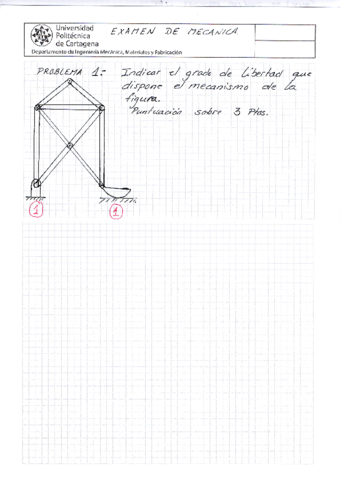 Universidad
Politécnica
de Cartagena
Departamento de Ingeniería Mecánica, Materiales y Fabricación
EXAMEN DE MECANICA
PROBLEMA 1:- Indicar el grado de Libertad que
dispone el mecanismo de la
figura.
Puntuación sobre 3 Ptos.
1
1